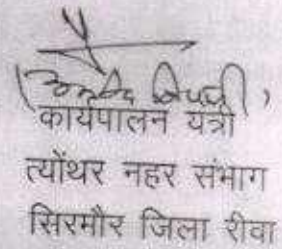 कार्यपालन यंत्री
त्योंथर नहर संभाग
सिरमौर जिला रीवा